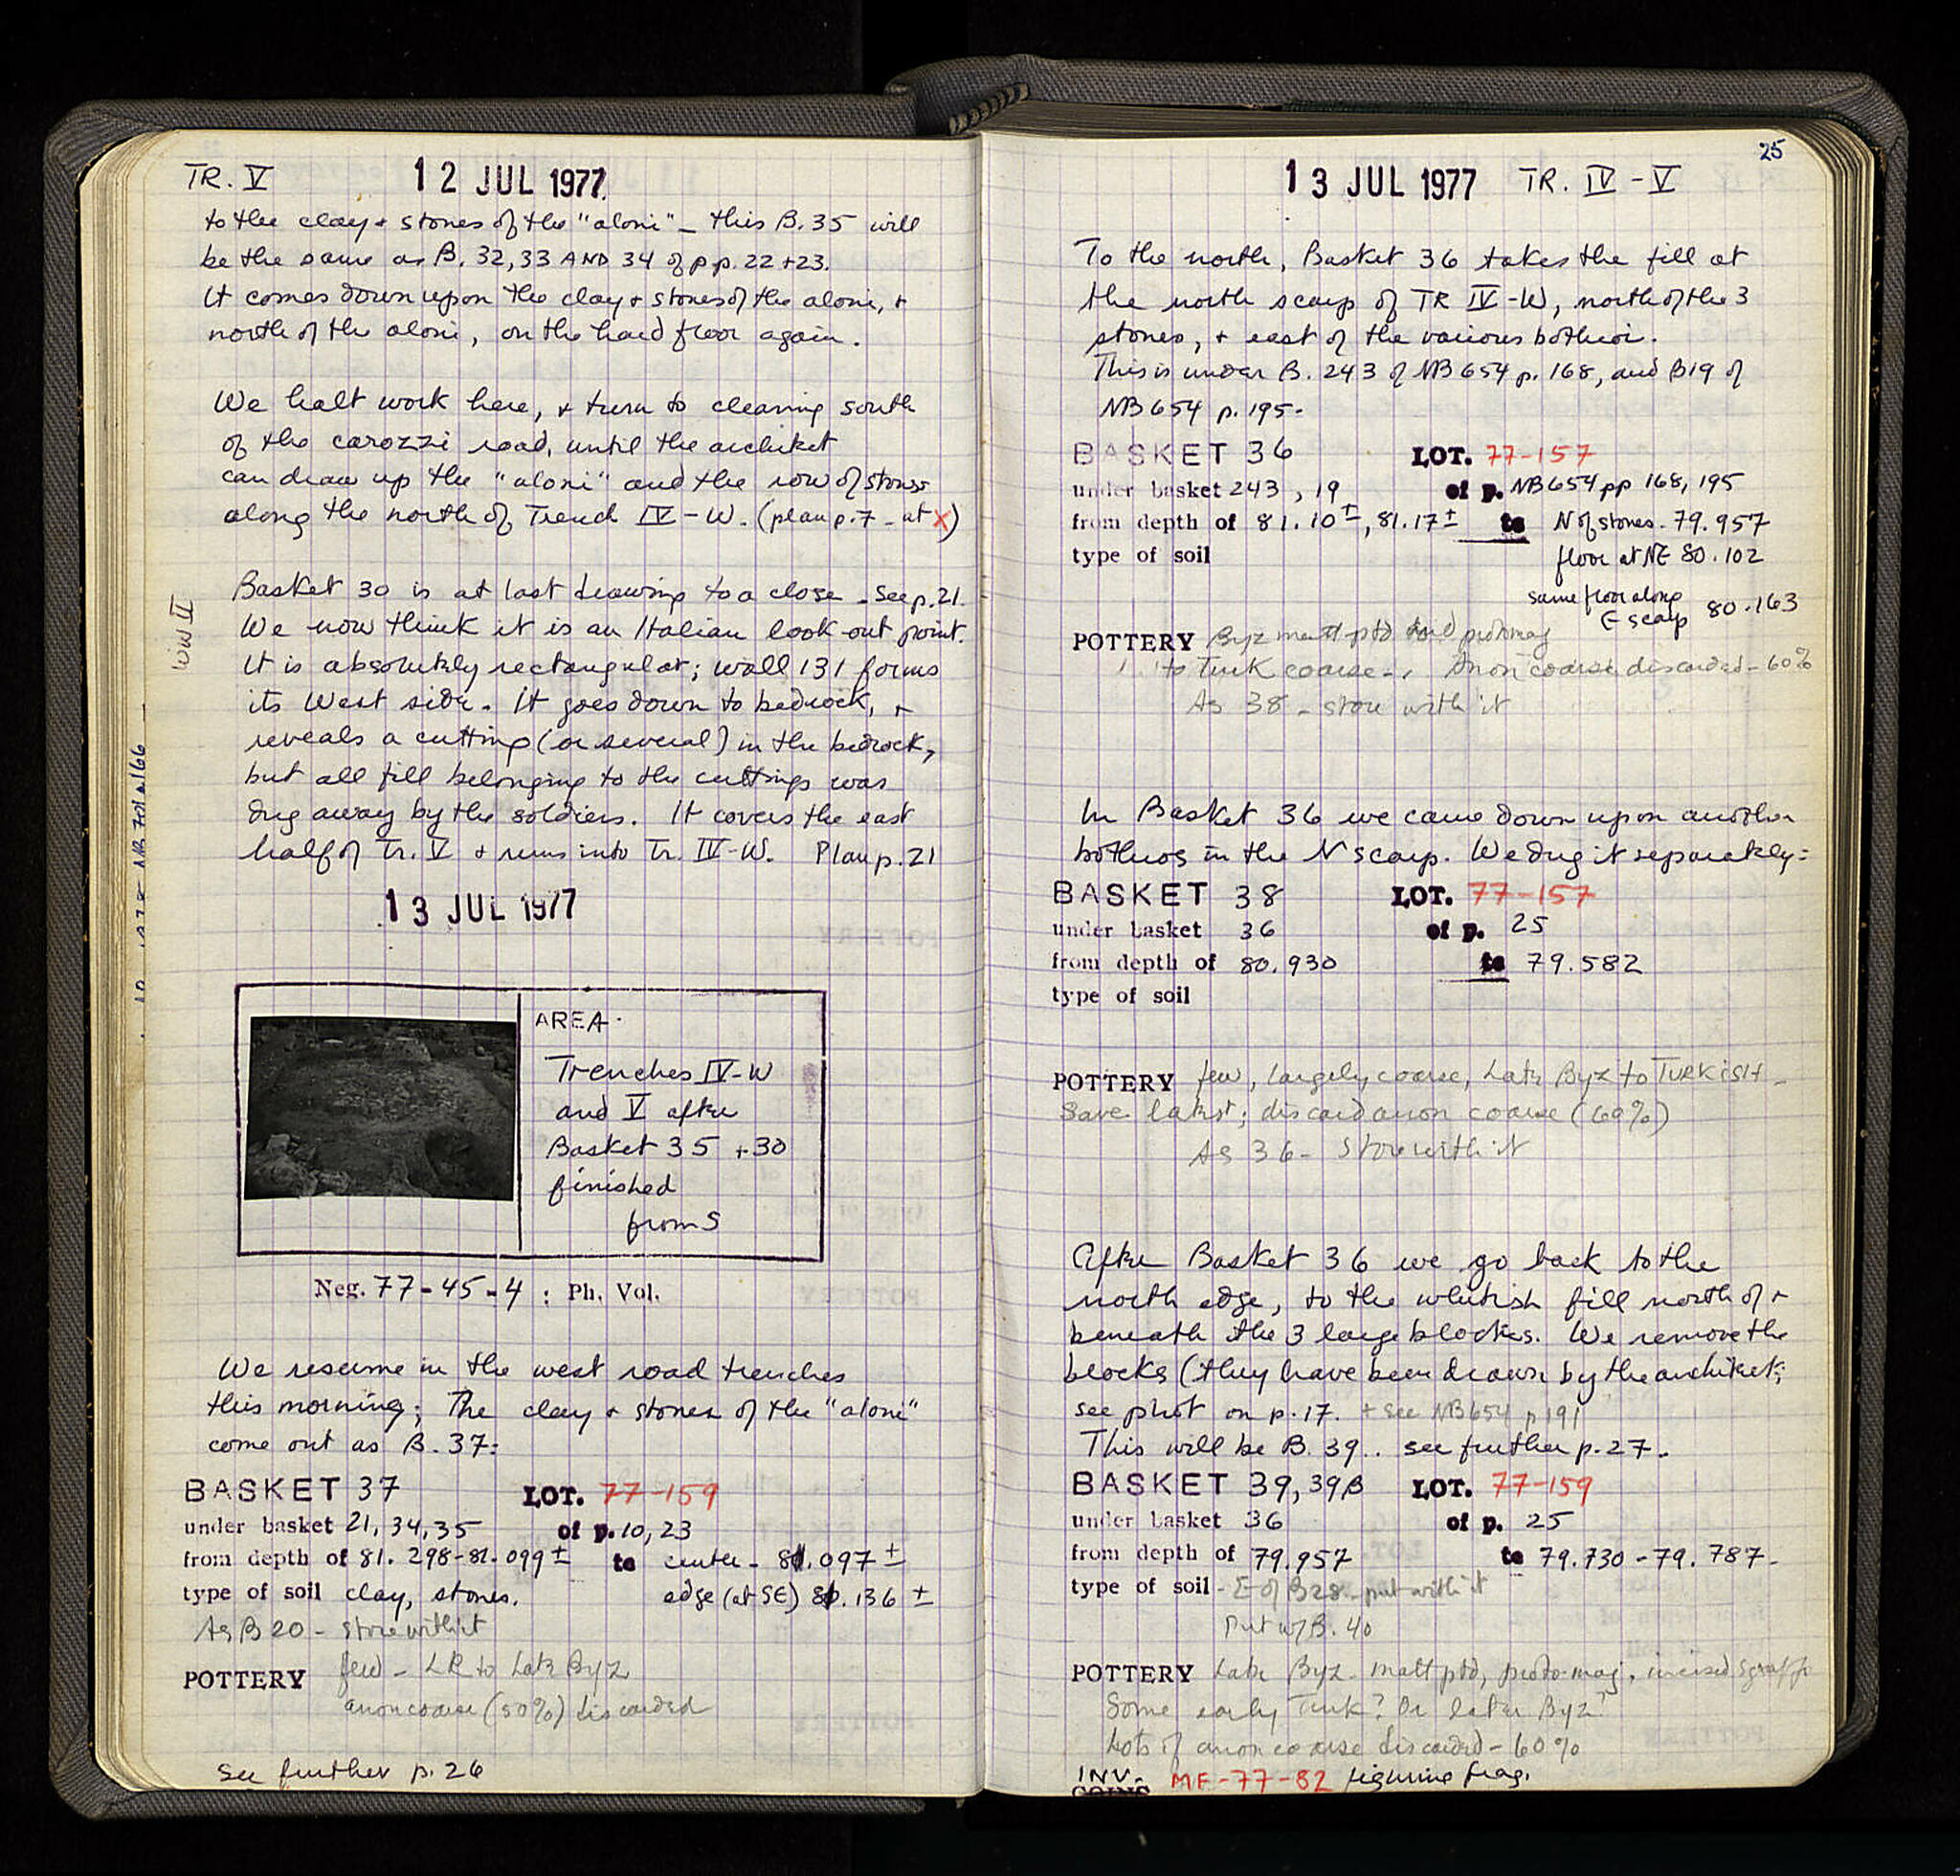 TR. V 12 JUL 1977
to the clay + stones of the "aloni" - this B. 35 will
be the same as B. 32, 33 AND 34 of pp. 22 + 23.
It comes down upon the clay + stones of the aloni, +
north of the aloni, on the hard floor again.
We halt work here, + turn to cleaning south
of the carozzi road, until the architect
can draw up the "aloni" and the row of stones
along the north of Trench IV - W. (plan p. 7 - at X)
Basket 30 is at last drawing to a close - See p. 21.
We now think it is an Italian look-out point.
It is absolutely rectangular; wall 131 forms
its West side. It goes down to bedrock, +
reveals a cutting (or several) in the bedrock,
but all fill belonging to the cuttings was
dug away by the soldiers. It covers the east
half of Tr. V + runs into Tr. IV-W. Plan p. 21
WW II
13 JUL 1977
AREA
Trenches IV-W
and V after
Basket 35 + 30
finished
from S
Neg. 77-45-4 : Ph. Vol.
We resume in the west road trenches
this morning; The clay + stones of the "aloni"
come out as B. 37:
BASKET 37 LOT. 77-159
under basket 21, 34, 35 of p. 10, 23
from depth of 81.298-81.099 ± to center - 81.097 ±
type of soil clay, stones. edge (at SE) 81.136 ±
As B 20 - store with it
POTTERY few - LR to Late Byz
anon coarse (50%) discarded
See further p. 26
25
13 JUL 1977 TR. IV - V
To the north, Basket 36 takes the fill at
the north scarp of TR IV-W, north of the 3
stones, + east of the various bothroi.
This is under B. 243 of NB 654 p. 168, and B19 of
NB 654 p. 195.
BASKET 36 LOT. 77-157
under basket 243, 19 of p. NB654 pp 168, 195
from depth of 81.10±, 81.17± to N of stones - 79.957
type of soil floor at NE 80.102
same floor along
E scarp 80.163
POTTERY Byz matt ptd and protomaj
to Turk coarse - Anon coarse discarded - 60%
As 38 - store with it
In Basket 36 we came down upon another
bothros in the N scarp. We dug it separately:
BASKET 38 LOT. 77-157
under basket 36 of p. 25
from depth of 80.930 to 79.582
type of soil
POTTERY few, largely coarse, Late Byz to TURKISH -
Save latest; discard anon coarse (60%)
As 36 - Store with it
After Basket 36 we go back to the
north edge, to the whitish fill north of +
beneath the 3 large blocks. We remove the
blocks (they have been drawn by the architect;
see phot on p. 17. + See NB654 p 191
This will be B. 39.. see further p. 27.
BASKET 39, 39B LOT. 77-159
under basket 36 of p. 25
from depth of 79.957 to 79.730 - 79.787 -
type of soil - E of B28 - put with it
Put w/ B. 40
POTTERY Late Byz - matt ptd, proto-maj, incised sgraff
Some early Turk? Or later Byz?
Lots of anon coarse discarded - 60%
INV. MF-77-82 figurine frag.
COINS